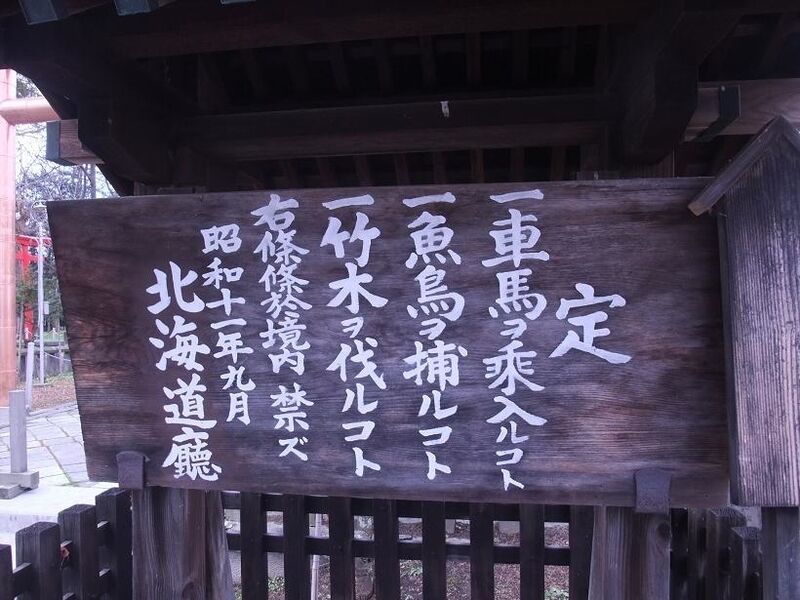 定
一車馬ヲ乘入ルコト
一魚鳥ヲ捕ルコト
一竹木ヲ伐ルコト
右條條於境内禁ズ
昭和十一年九月
北海道廳